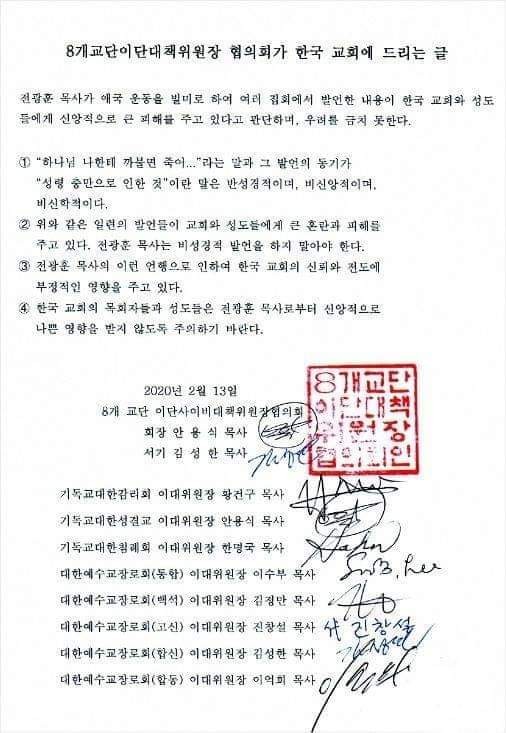 8개교단이단대책위원장 협의회가 한국 교회에 드리는 글
전광훈 목사가 애국 운동을 빌미로 하여 여러 집회에서 발언한 내용이 한국 교회와 성도
들에게 신앙적으로 큰 피해를 주고 있다고 판단하며, 우려를 금치 못한다.
① “하나님 나한테 까불면 죽어...”라는 말과 그 발언의 동기가
“성령 충만으로 인한 것”이란 말은 반성경적이며, 비신앙적이며,
비신학적이다.
② 위와 같은 일련의 발언들이 교회와 성도들에게 큰 혼란과 피해를
주고 있다. 전광훈 목사는 비성경적 발언을 하지 말아야 한다.
③ 전광훈 목사의 이런 언행으로 인하여 한국 교회의 신뢰와 전도에
부정적인 영향을 주고 있다.
④ 한국 교회의 목회자들과 성도들은 전광훈 목사로부터 신앙적으로
나쁜 영향을 받지 않도록 주의하기 바란다.
2020년 2월 13일
8개 교단 이단사이비대책위원장협의회
회장 안용식 목사
서기 김성한 목사
8개교단
이단대책
위원장
협의회인
기독교대한감리회 이대위원장 황건구 목사
기독교대한성결교 이대위원장 안용식 목사
기독교대한침례회 이대위원장 한명국 목사
대한예수교장로회(통합) 이대위원장 이수부 목사 SooB, Lee
대한예수교장로회(백석) 이대위원장 김정만 목사
대한예수교장로회(고신) 이대위원장 진창설 목사 진창설
대한예수교장로회(합신) 이대위원장 김성한 목사
대한예수교장로회(합동) 이대위원장 이억희 목사